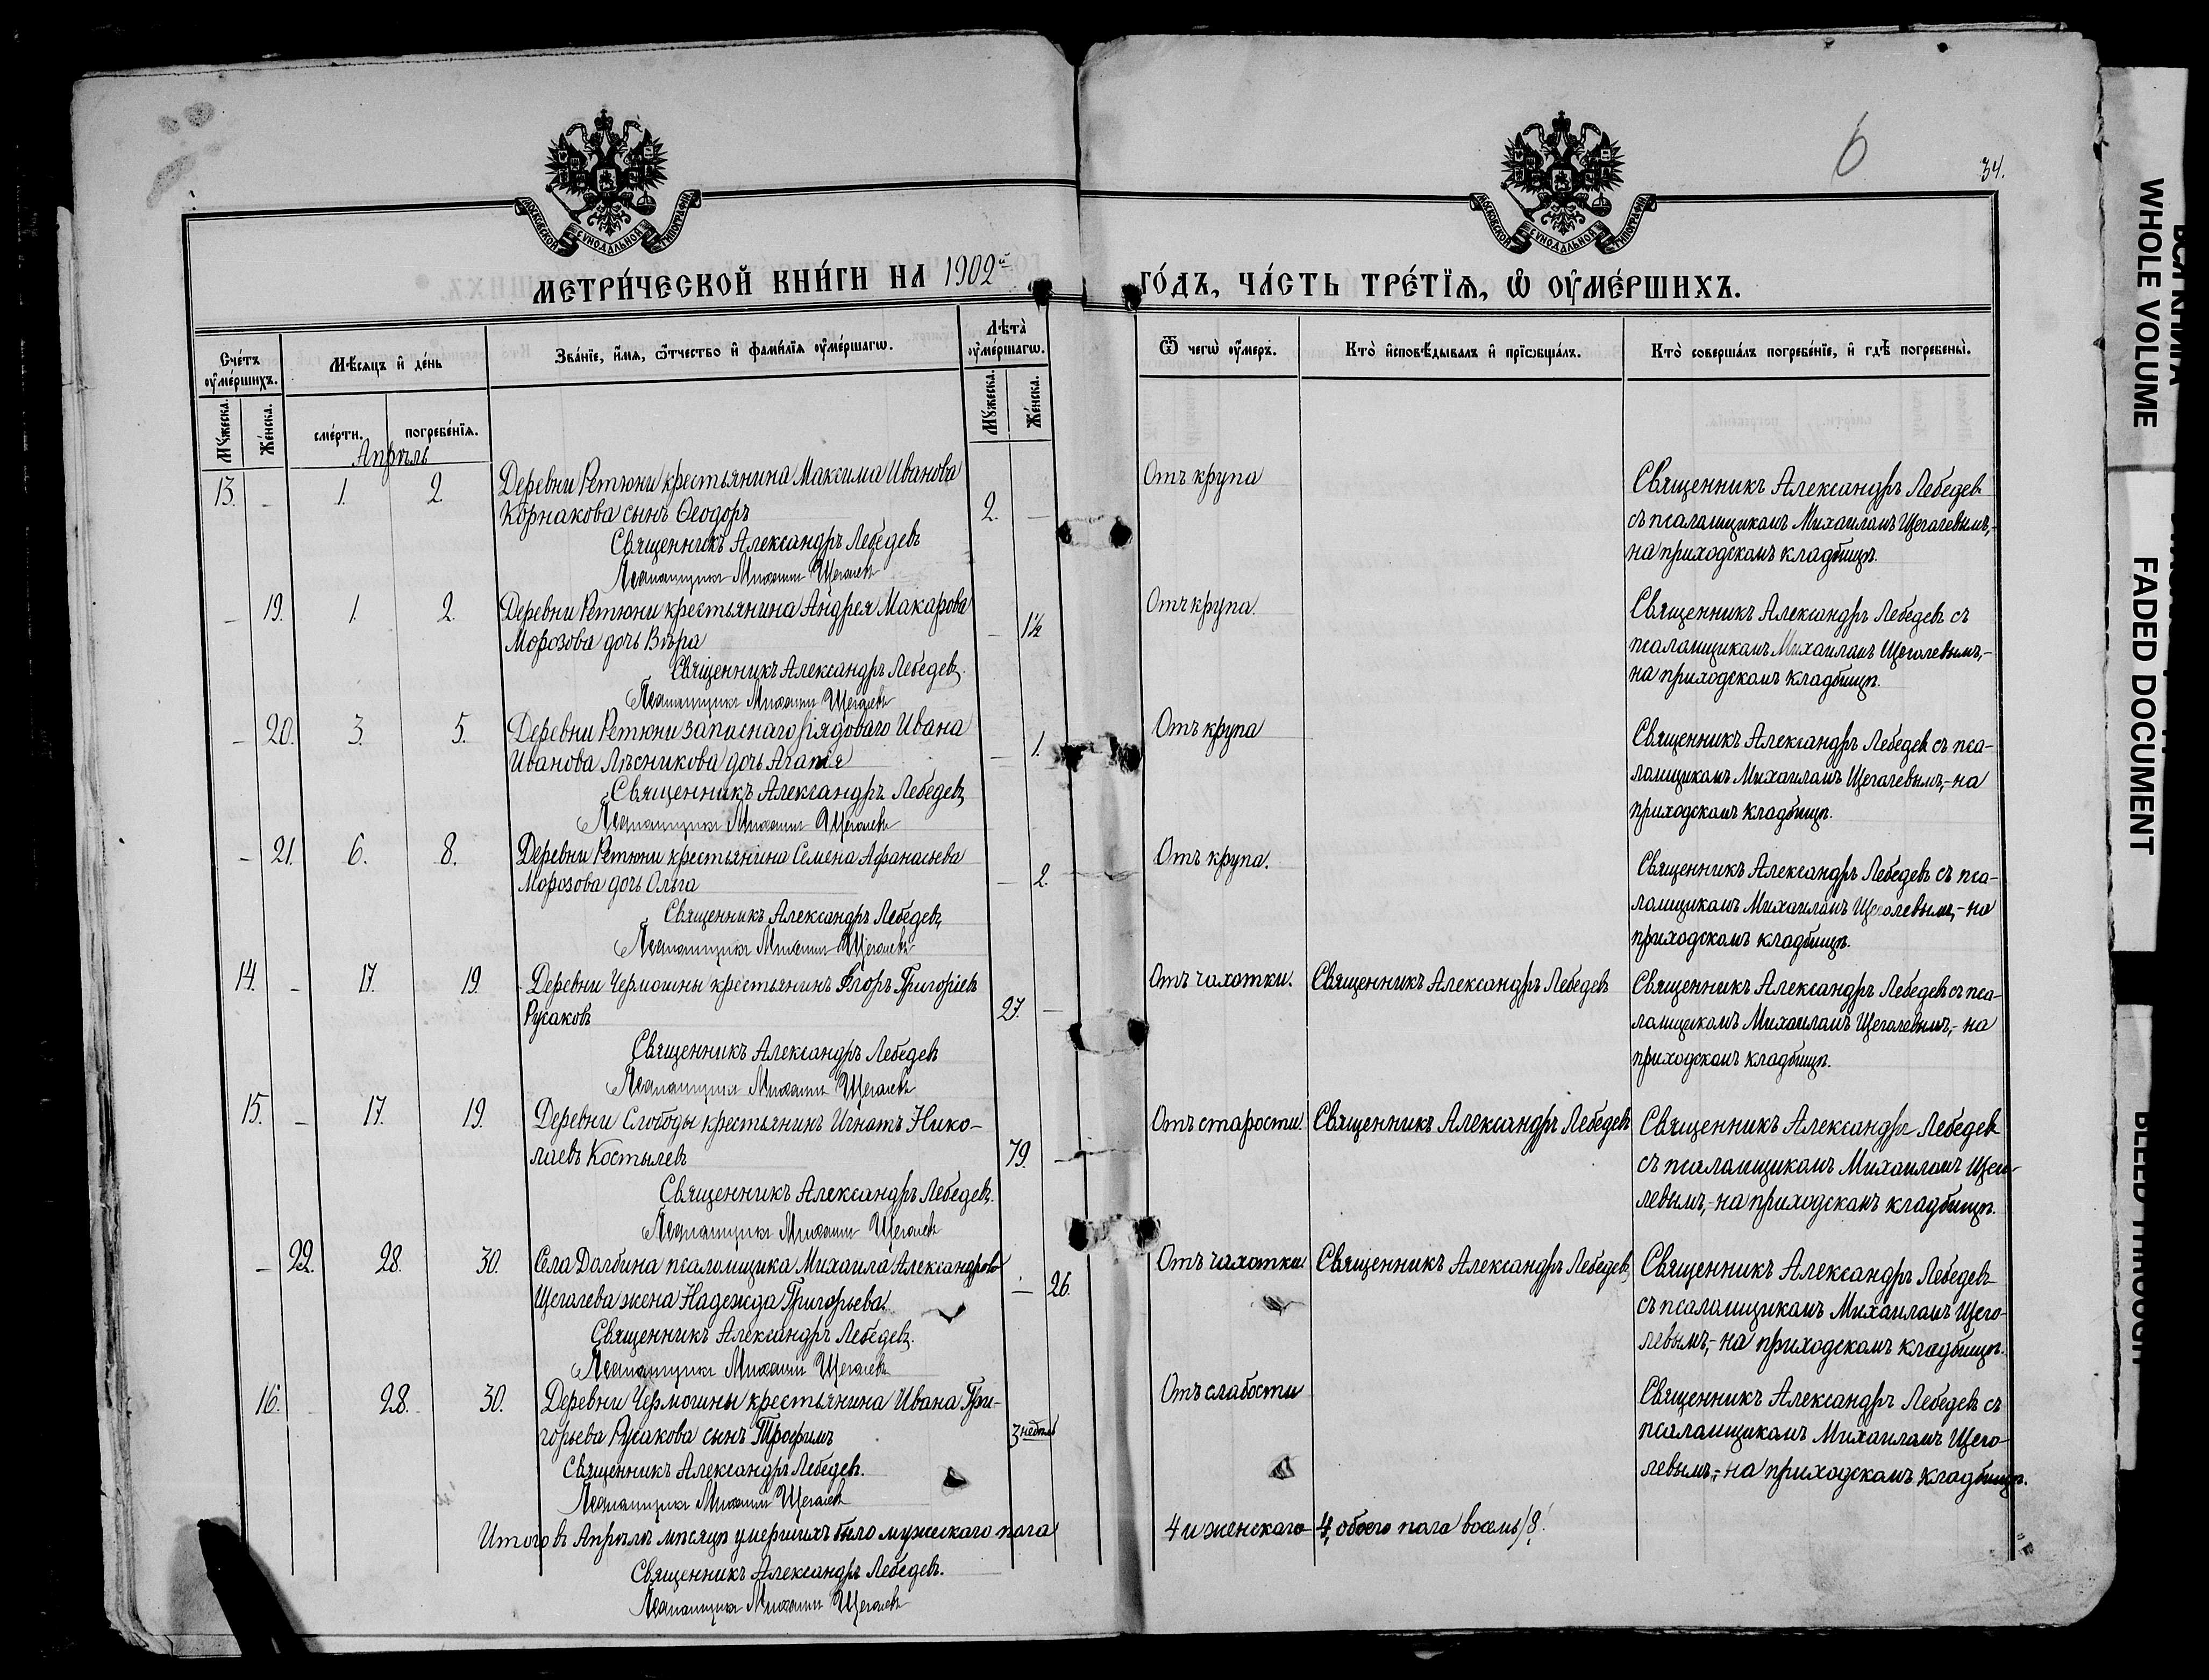 6
34.
МОСКОВСКОЙ СѴНОДАЛЬНОЙ ТИПОГРАФІИ
МОСКОВСКОЙ СѴНОДАЛЬНОЙ ТИПОГРАФІИ
МЕТРИ́ЧЕСКОЙ КНИ́ГИ НА 1902й ГО́ДЪ, ЧА́СТЬ ТРЕ́ТЇѦ, Ѽ ОУ҆МЕ́РШИХЪ.
Сче́тъ оу҆ме́ршихъ.
Мѣ́сѧцъ и҆ де́нь
Зва́нїе, и҆́мѧ, ѻ҆́тчество и҆ фами́лїѧ оу҆ме́ршагѡ.
Лѣта̀ оу҆ме́ршагѡ.
Ѿ чегѡ̀ оу҆́меръ.
Кто̀ и҆сповѣ́дывалъ и҆ прїѡбща́лъ.
Кто̀ соверша́лъ погребе́нїе, и҆ гдѣ̀ погребены̀.
Мꙋ́жеска.
Же́нска.
сме́рти.
погребе́нїѧ.
Мꙋ́жеска.
Же́нска.
Апрѣль
13. - 1. 2. Деревни Ретюни крестьянина Максима Иванова
Корнакова сынъ Ѳеодоръ 2. -
Священникъ Александръ Лебедевъ
Псаломщикъ Михаилъ Щеголевъ
Отъ крупа
Священникъ Александръ Лебедевъ
съ псаломщикомъ Михаиломъ Щеголевымъ,-
на приходскомъ кладбищѣ.
- 19. 1. 2. Деревни Ретюни крестьянина Андрея Макарова
Морозова дочь Вѣра - 1½
Священникъ Александръ Лебедевъ.
Псаломщикъ Михаилъ Щеголевъ
Отъ крупа.
Священникъ Александръ Лебедевъ съ
псаломщикомъ Михаиломъ Щеголевымъ,-
на приходскомъ кладбищѣ.
- 20. 3. 5. Деревни Ретюни запаснаго рядоваго Ивана
Иванова Лѣсникова дочь Агапія - 1.
Священникъ Александръ Лебедевъ
Псаломщикъ Михаилъ Щеголевъ
Отъ крупа
Священникъ Александръ Лебедевъ съ пса-
ломщикомъ Михаиломъ Щеголевымъ,- на
приходскомъ кладбищѣ.
- 21. 6. 8. Деревни Ретюни крестьянина Семена Афанасьева
Морозова дочь Ольга - 2.
Священникъ Александръ Лебедевъ
Псаломщикъ Михаилъ Щеголевъ
Отъ крупа.
Священникъ Александръ Лебедевъ съ пса-
ломщикомъ Михаиломъ Щеголевымъ,- на
приходскомъ кладбищѣ.
14. - 17. 19. Деревни Чермошны крестьянинъ Егоръ Григоріевъ
Русаковъ 27. -
Священникъ Александръ Лебедевъ
Псаломщикъ Михаилъ Щеголевъ
Отъ чахотки. Священникъ Александръ Лебедевъ
Священникъ Александръ Лебедевъ съ пса-
ломщикомъ Михаиломъ Щеголевымъ,- на
приходскомъ кладбищѣ.
15. - 17. 19. Деревни Слободы крестьянинъ Игнатъ Нико-
лаевъ Костылевъ 79. -
Священникъ Александръ Лебедевъ.
Псаломщикъ Михаилъ Щеголевъ
Отъ старости Священникъ Александръ Лебедевъ
Священникъ Александръ Лебедевъ
съ псаломщикомъ Михаиломъ Щего-
левымъ,- на приходскомъ кладбищѣ.
- 22. 28. 30. Села Долбина псаломщика Михаила Александрова
Щеголева жена Надежда Григорьева. - 26.
Священникъ Александръ Лебедевъ.
Псаломщикъ Михаилъ Щеголевъ
Отъ чахотки Священникъ Александръ Лебедевъ
Священникъ Александръ Лебедевъ
съ псаломщикомъ Михаиломъ Щего-
левымъ,- на приходскомъ кладбищѣ.
16. 28. 30. Деревни Чермошны крестьянина Ивана Гри-
горьева Русакова сынъ Трофимъ 3 недѣль
Священникъ Александръ Лебедевъ.
Псаломщикъ Михаилъ Щеголевъ
Отъ слабости
Священникъ Александръ Лебедевъ съ
псаломщикомъ Михаиломъ Щего-
левымъ,- на приходскомъ кладбищѣ.
Итого въ Апрѣлѣ мѣсяцѣ умершихъ было мужескаго пола 4 и женскаго 4, обоего пола восемь /8/.
Священникъ Александръ Лебедевъ.
Псаломщикъ Михаилъ Щеголевъ
ВСЯ КНИГА
WHOLE VOLUME
FADED DOCUMENT
BLEED THROUGH